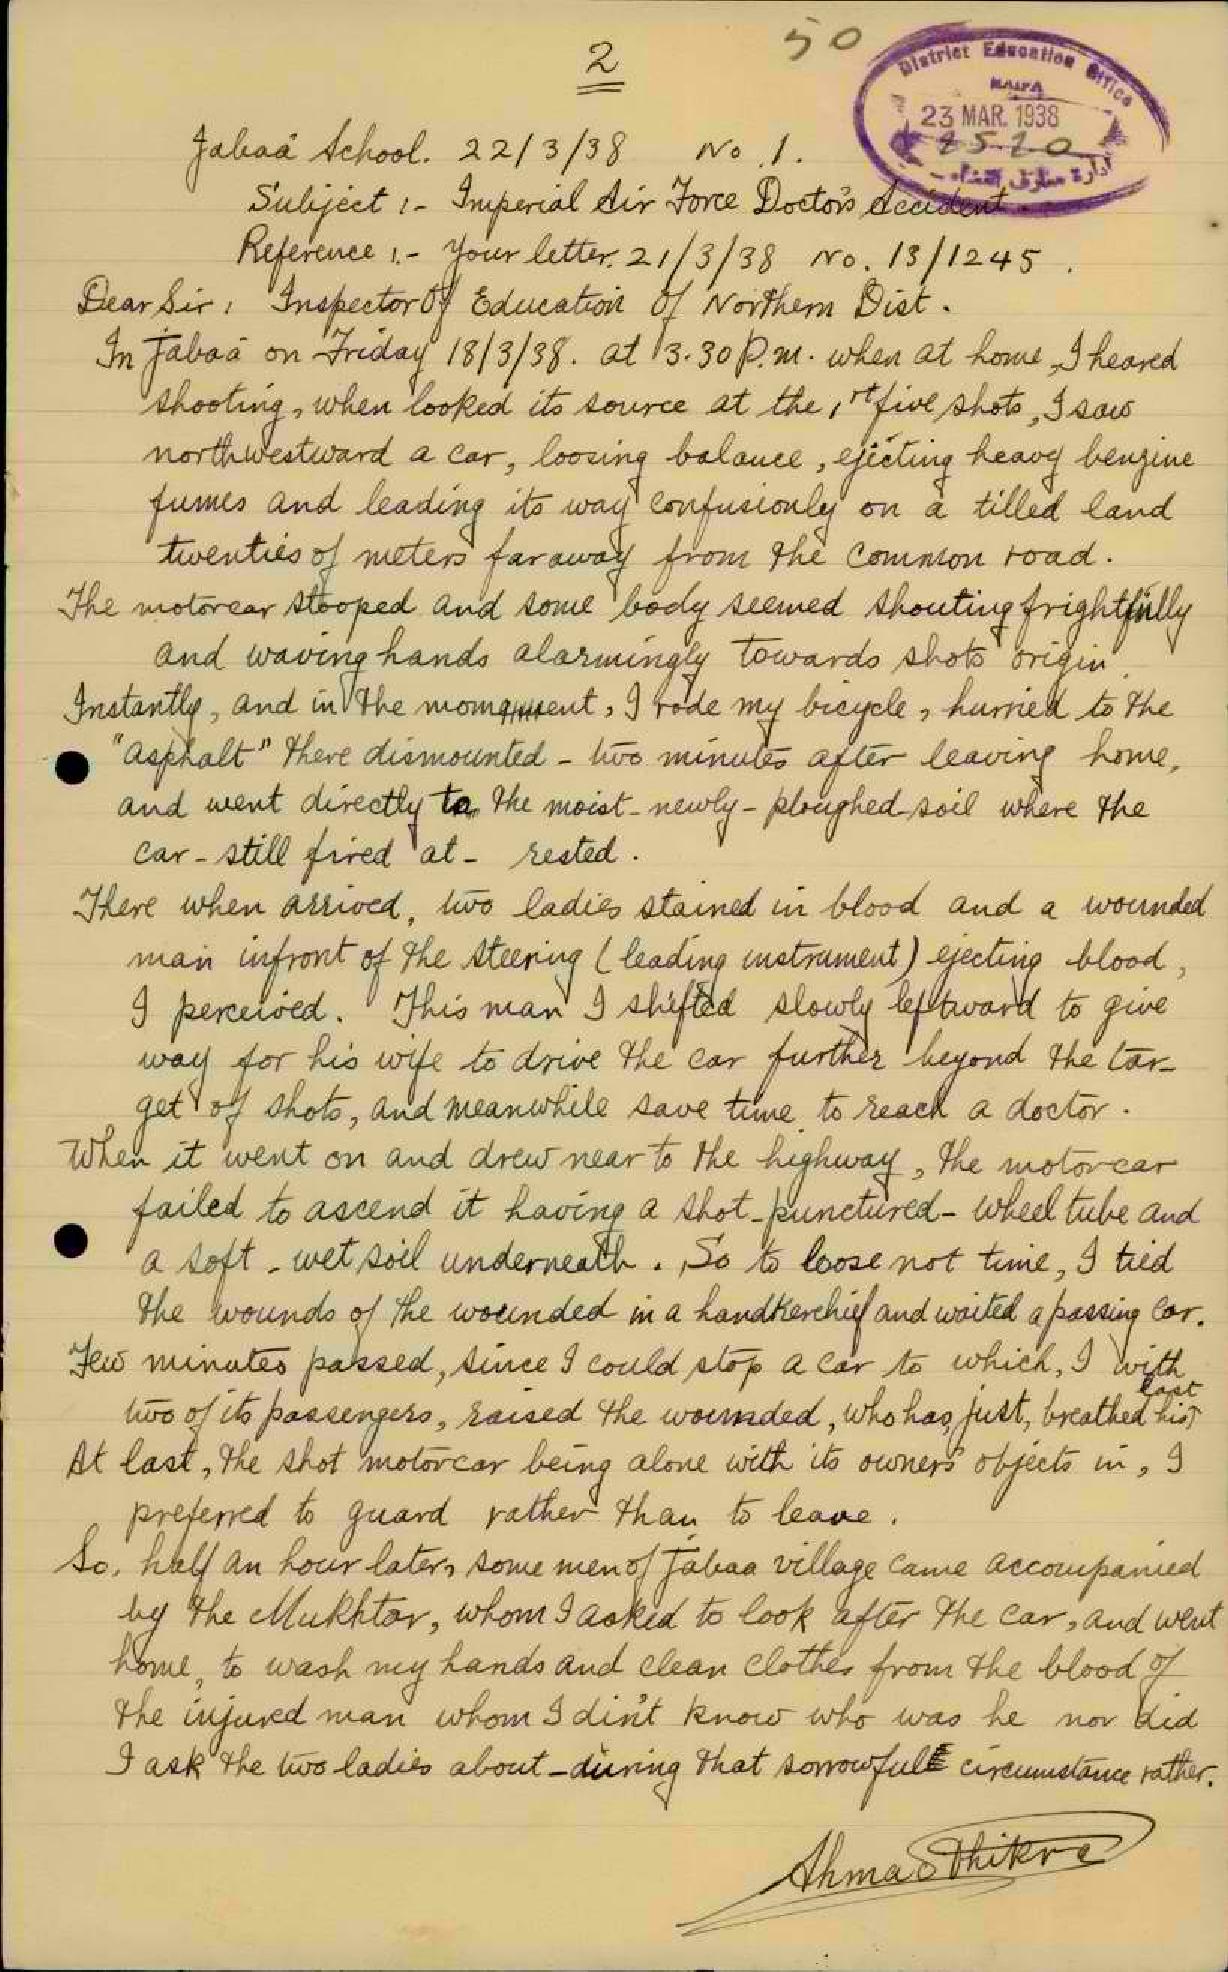 50
2
District Education Office
HAIFA
23 MAR. 1938
Jabaá School. 22/3/38 No. 1.
Subject :- Imperial Air Force Doctor's Accident.
Reference :- Your letter. 21/3/38 No. 13/1245.
Dear Sir: Inspector Of Education Of Northern Dist.
In Jabaá on Friday 18/3/38. at 3.30 P.m. when at home, I heared
shooting, when looked its source at the 1st five shots, I saw
northwestward a car, loosing balance, ejecting heavy benzine
fumes and leading its way confusionly on a tilled land
twenties of meters far away from the common road.
The motorcar stooped and some body seemed shouting frightfully
and waving hands alarmingly towards shots origin.
Instantly, and in the moment, I rode my bicycle, hurried to the
"asphalt" there dismounted - two minutes after leaving home,
and went directly to the moist-newly-ploughed-soil where the
car - still fired at - rested.
There when arrived, two ladies stained in blood and a wounded
man infront of the steering (leading instrument) ejecting blood,
I perceived. This man I shifted slowly leftward to give
way for his wife to drive the car further beyond the tar-
get of shots, and meanwhile save time to reach a doctor.
When it went on and drew near to the highway, the motorcar
failed to ascend it having a shot-punctured-wheel tube and
a soft-wet soil underneath. So to loose not time, I tied
the wounds of the wounded in a handkerchief and waited a passing car.
Few minutes passed, since I could stop a car to which, I with
two of its passengers, raised the wounded, who has, just, breathed his last
At last, the shot motorcar being alone with its owners' objects in, I
preferred to guard rather than to leave.
So, half an hour later, some men of Jabaa village came accompanied
by the Mukhtar, whom I asked to look after the car, and went
home, to wash my hands and clean clothes from the blood of
the injured man whom I din't know who was he nor did
I ask the two ladies about - during that sorrowful circumstance rather.